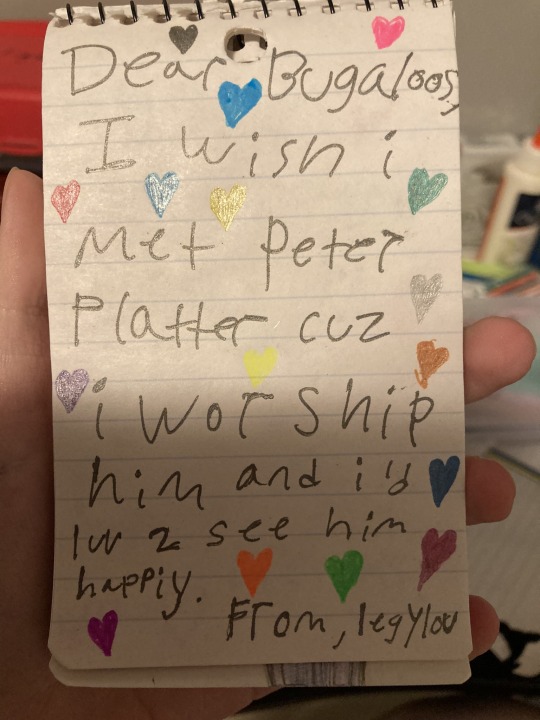 Dear Bugaloos,
I wish i
met peter
Platter cuz
i worship
him and i'd
luv 2 see him
happiy.
From, legylou